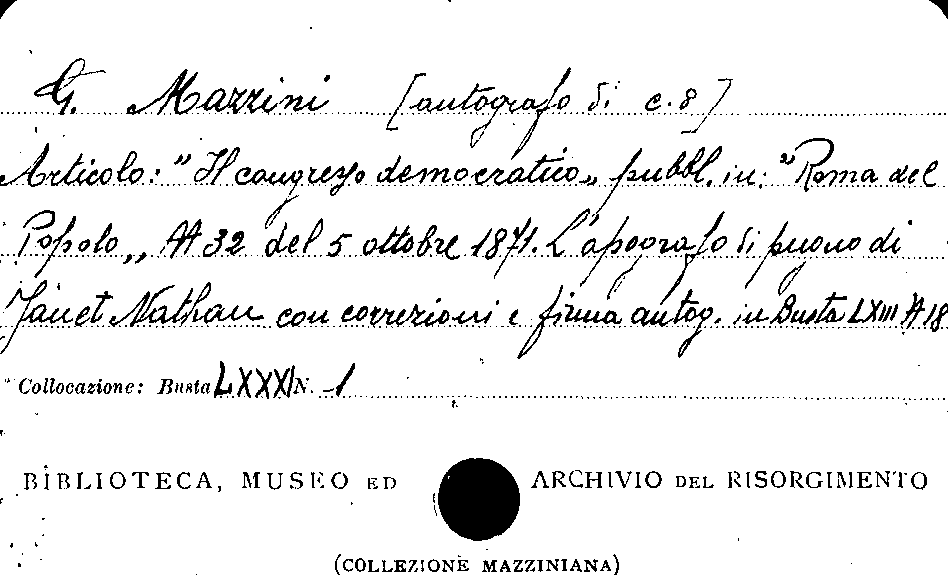 G. Mazzini [autografo di c. 8]
Articolo: "Il congresso democratico„ pubbl. in: "Roma del
Popolo„, N 32 del 5 ottobre 1871. L'apografo di pugno di
Janet Nathan con correzioni e firma autog. in Busta LXIII N 18
Collocazione: Busta LXXXI N. 1
BIBLIOTECA, MUSEO ED ARCHIVIO DEL RISORGIMENTO
(COLLEZIONE MAZZINIANA)